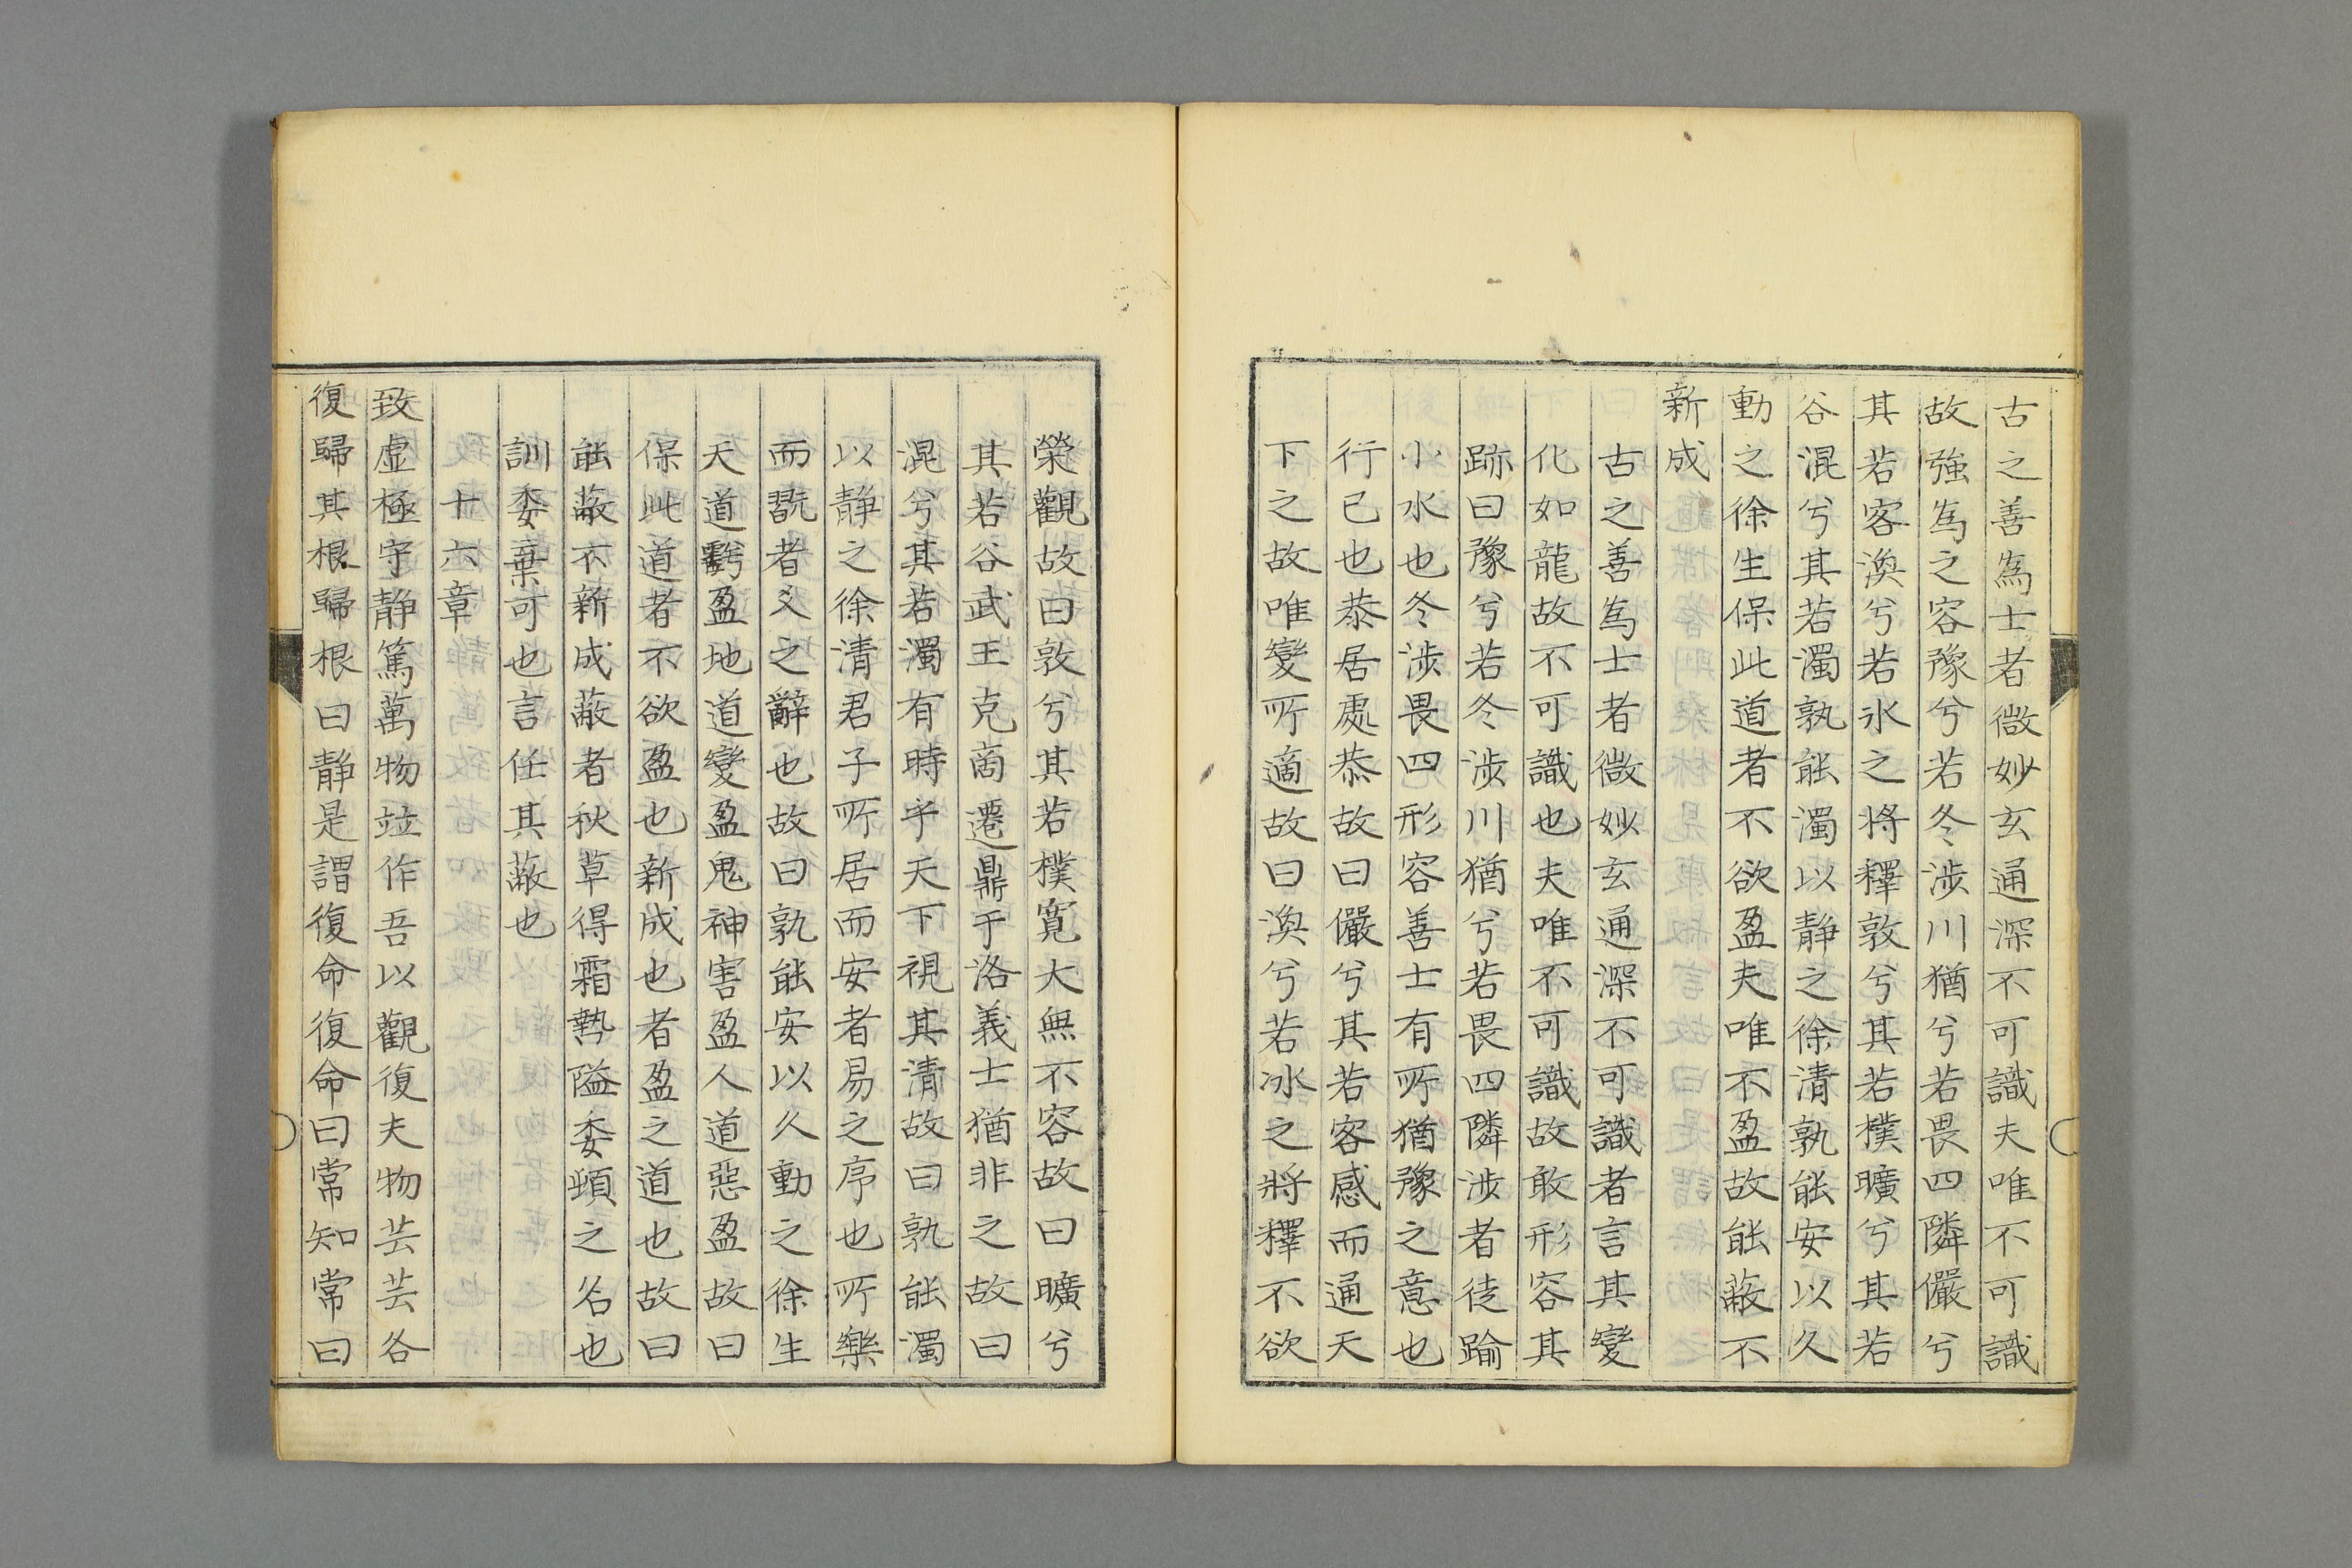 古之善為士者微妙玄通深不可識夫唯不可識
故強為之容豫兮若冬涉川猶兮若畏四隣儼兮
其若客渙兮若氷之將釋敦兮其若樸曠兮其若
谷混兮其若濁孰能濁以靜之徐清孰能安以久
動之徐生保此道者不欲盈夫唯不盈故能蔽不
新成
古之善為士者微妙玄通深不可識者言其變
化如龍故不可識也夫唯不可識故敢形容其
跡曰豫兮若冬涉川猶兮若畏四隣涉者徒踰
小水也冬涉畏四形容善士有所猶豫之意也
行已也恭居處恭故曰儼兮其若客感而通天
下之故唯變所適故曰渙兮若冰之將釋不欲
榮觀故曰敦兮其若樸寬大無不容故曰曠兮
其若谷武王克商遷鼎于洛義士猶非之故曰
混兮其若濁有時乎天下視其清故曰孰能濁
以靜之徐清君子所居而安者易之序也所樂
而翫者爻之辭也故曰孰能安以久動之徐生
天道虧盈地道變盈鬼神害盈人道惡盈故曰
保此道者不欲盈也新成也者盈之道也故曰
能蔽不新成蔽者秋草得霜勢隘委頓之名也
訓委棄可也言任其蔽也
十六章
致虛極守靜篤萬物竝作吾以觀復夫物芸芸各
復歸其根歸根曰靜是謂復命復命曰常知常曰